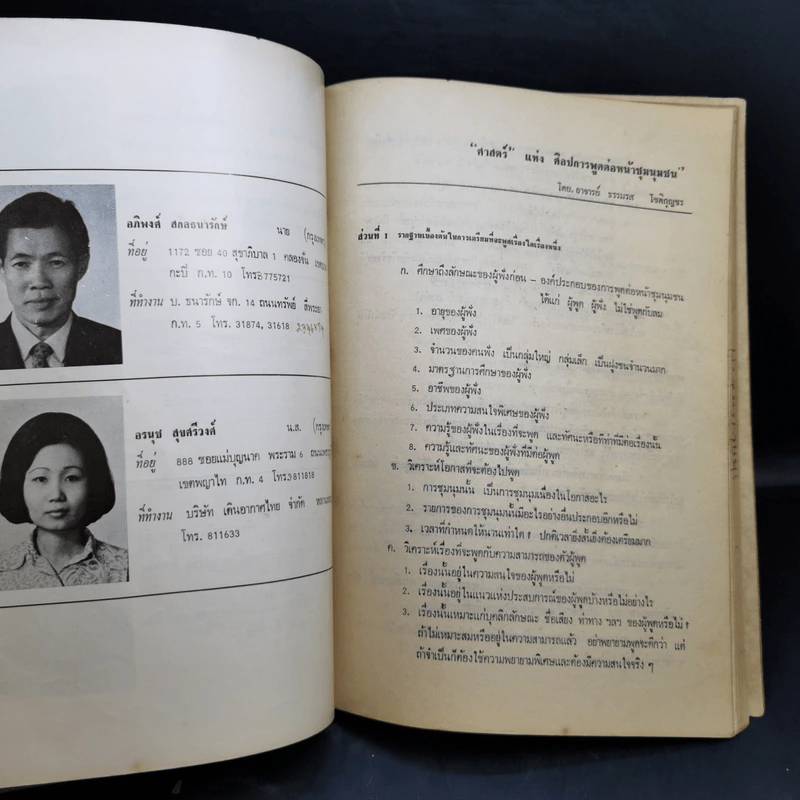 อภิพงศ์ สกลธนารักษ์ นาย (กรุงเทพฯ
ที่อยู่ 1172 ซอย 40 สุขาภิบาล 1 คลองจั่น
กะปิ ก.ท. 10 โทร3775721
ที่ทำงาน บ. ธนารักษ์ จก. 14 ถนนทรัพย์ สี่พระยา
ก.ท. 5 โทร. 31874, 31618
อรนุช สุขศรีวงศ์ น.ส. (กรุงเทพฯ
ที่อยู่ 888 ซอยแม่บุญนาค พระราม 6
เขตพญาไท ก.ท. 4 โทร.811818
ที่ทำงาน บริษัท เดินอากาศไทย จำกัด
โทร. 811633
"ศาสตร์" แห่ง ศิลปการพูดต่อหน้าชุมนุมชน"
โดย. อาจารย์ ธรรมรส โชติกุญชร
ส่วนที่ 1 รากฐานเบื้องต้นในการเตรียมที่จะพูดเรื่องใดเรื่องหนึ่ง
ก. ศึกษาถึงลักษณะของผู้ฟังก่อน - องค์ประกอบของการพูดต่อหน้าชุมนุมชน
ได้แก่ ผู้พูด ผู้ฟัง ไม่ใช่พูดกับลม
1. อายุของผู้ฟัง
2. เพศของผู้ฟัง
3. จำนวนของคนฟัง เป็นกลุ่มใหญ่ กลุ่มเล็ก เป็นฝูงชนจำนวนมาก
4. มาตรฐานการศึกษาของผู้ฟัง
5. อาชีพของผู้ฟัง
6. ประเภทความสนใจพิเศษของผู้ฟัง
7. ความรู้ของผู้ฟังในเรื่องที่จะพูด และทัศนะหรือทีท่าที่มีต่อเรื่องนั้น
8. ความรู้และทัศนะของผู้ฟังที่มีต่อผู้พูด
ข. วิเคราะห์โอกาสที่จะต้องไปพูด
1. การชุมนุมนั้น เป็นการชุมนุมเนื่องในโอกาสอะไร
2. รายการของการชุมนุมนั้นมีอะไรอย่างอื่นประกอบอีกหรือไม่
3. เวลาที่กำหนดให้นานเท่าใด ? ปกติเวลายิ่งสั้นยิ่งต้องเตรียมมาก
ค. วิเคราะห์เรื่องที่จะพูดกับความสามารถของตัวผู้พูด
1. เรื่องนั้นอยู่ในความสนใจของผู้พูดหรือไม่
2. เรื่องนั้นอยู่ในแนวแห่งประสบการณ์ของผู้พูดบ้างหรือไม่อย่างไร
3. เรื่องนั้นเหมาะแก่บุคลิกลักษณะ ชื่อเสียง ท่าทาง ฯลฯ ของผู้พูดหรือไม่ ?
ถ้าไม่เหมาะสมหรืออยู่ในความสามารถแล้ว อย่าพยายามพูดจะดีกว่า แต่
ถ้าจำเป็นก็ต้องใช้ความพยายามพิเศษและต้องมีความสนใจจริง ๆ